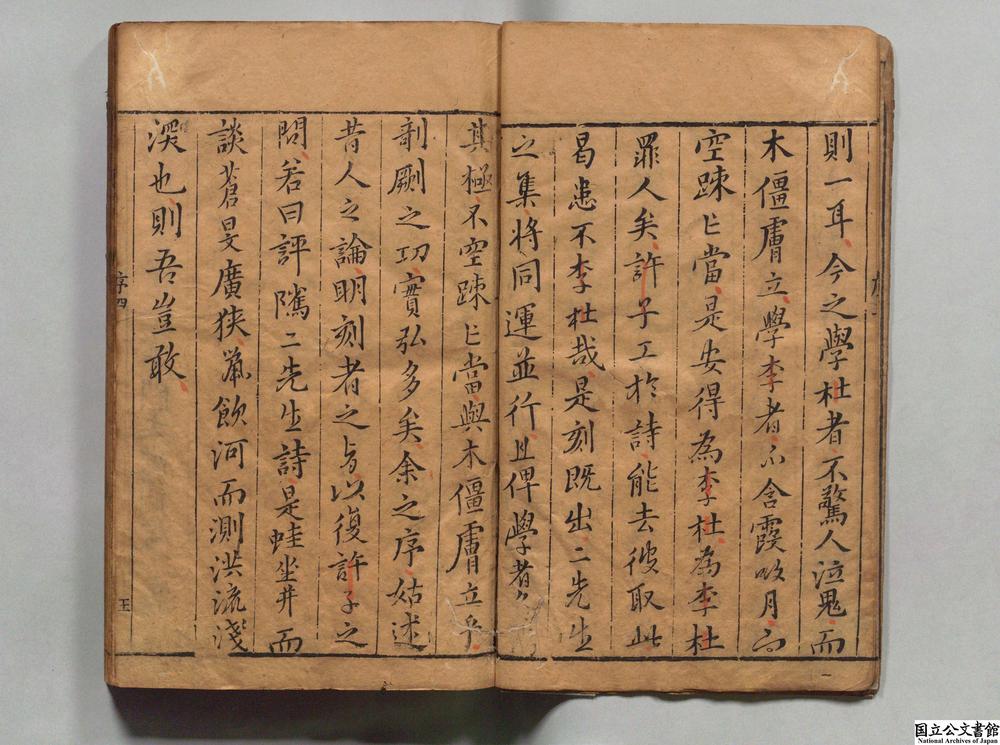 則一耳今之學杜者不驚人泣鬼而
木僵膚立學李者不含霞吸月而
空踈亡當是安得為李杜為李杜
罪人矣許子工於詩能去彼取此
曷患不李杜哉是刻既出二先生
之集將同運並行且俾學者
其極不空踈亡當與木僵膚立乎
剞劂之功實弘多矣余之序姑述
昔人之論明刻者之以復許子之
問若曰評隲二先生詩是蛙坐井而
談蒼旻廣狹鼠飲河而測洪流淺
深也則吾豈敢
序四
王
國立公文書館
National Archives of Japan